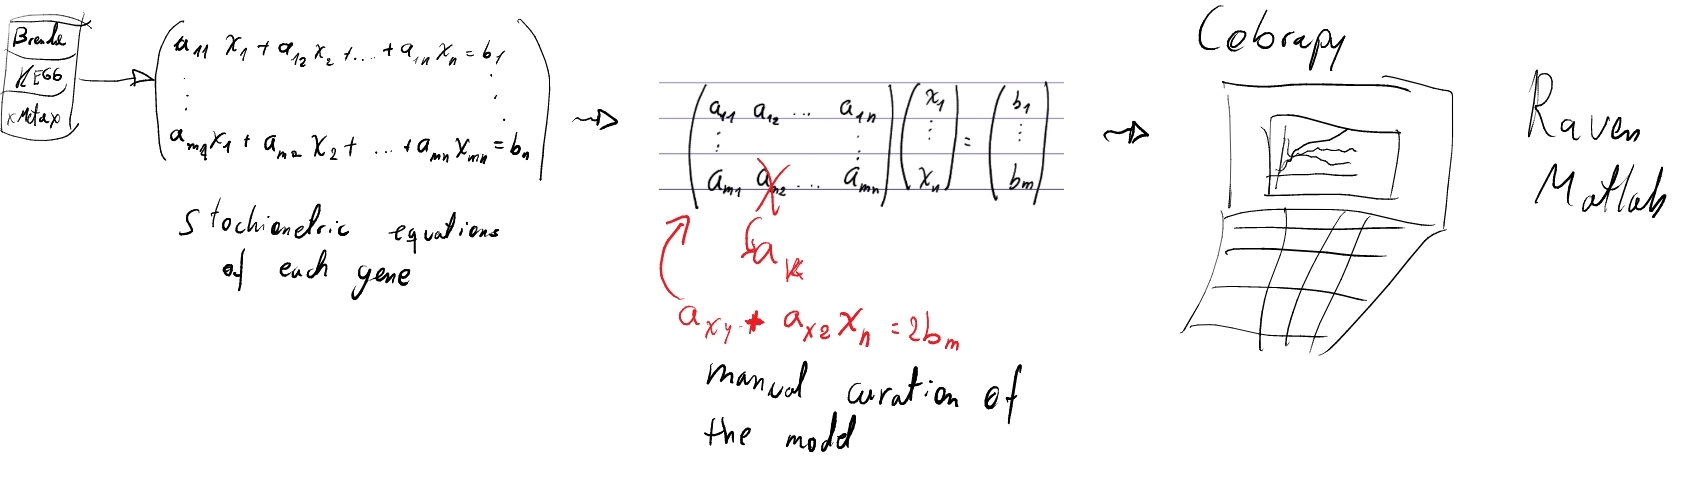 Brenda
KEGG
a₁₁ x₁ + a₁₂ x₂ + .... + a₁ₙ xₙ = b₁
⋮ ⋮
aₘ₁ x₁ + aₘ₂ x₂ + ... + aₘₙ xₘₙ = bₙ
Stochiometric equations
of each gene
a₁₁ a₁₂ ... a₁ₙ x₁ = b₁
⋮ ⋮ ⋮ ⋮
aₘ₁ ... aₘₙ xₙ bₘ
manual curation of
the model
Cobrapy
Raven
Matlab